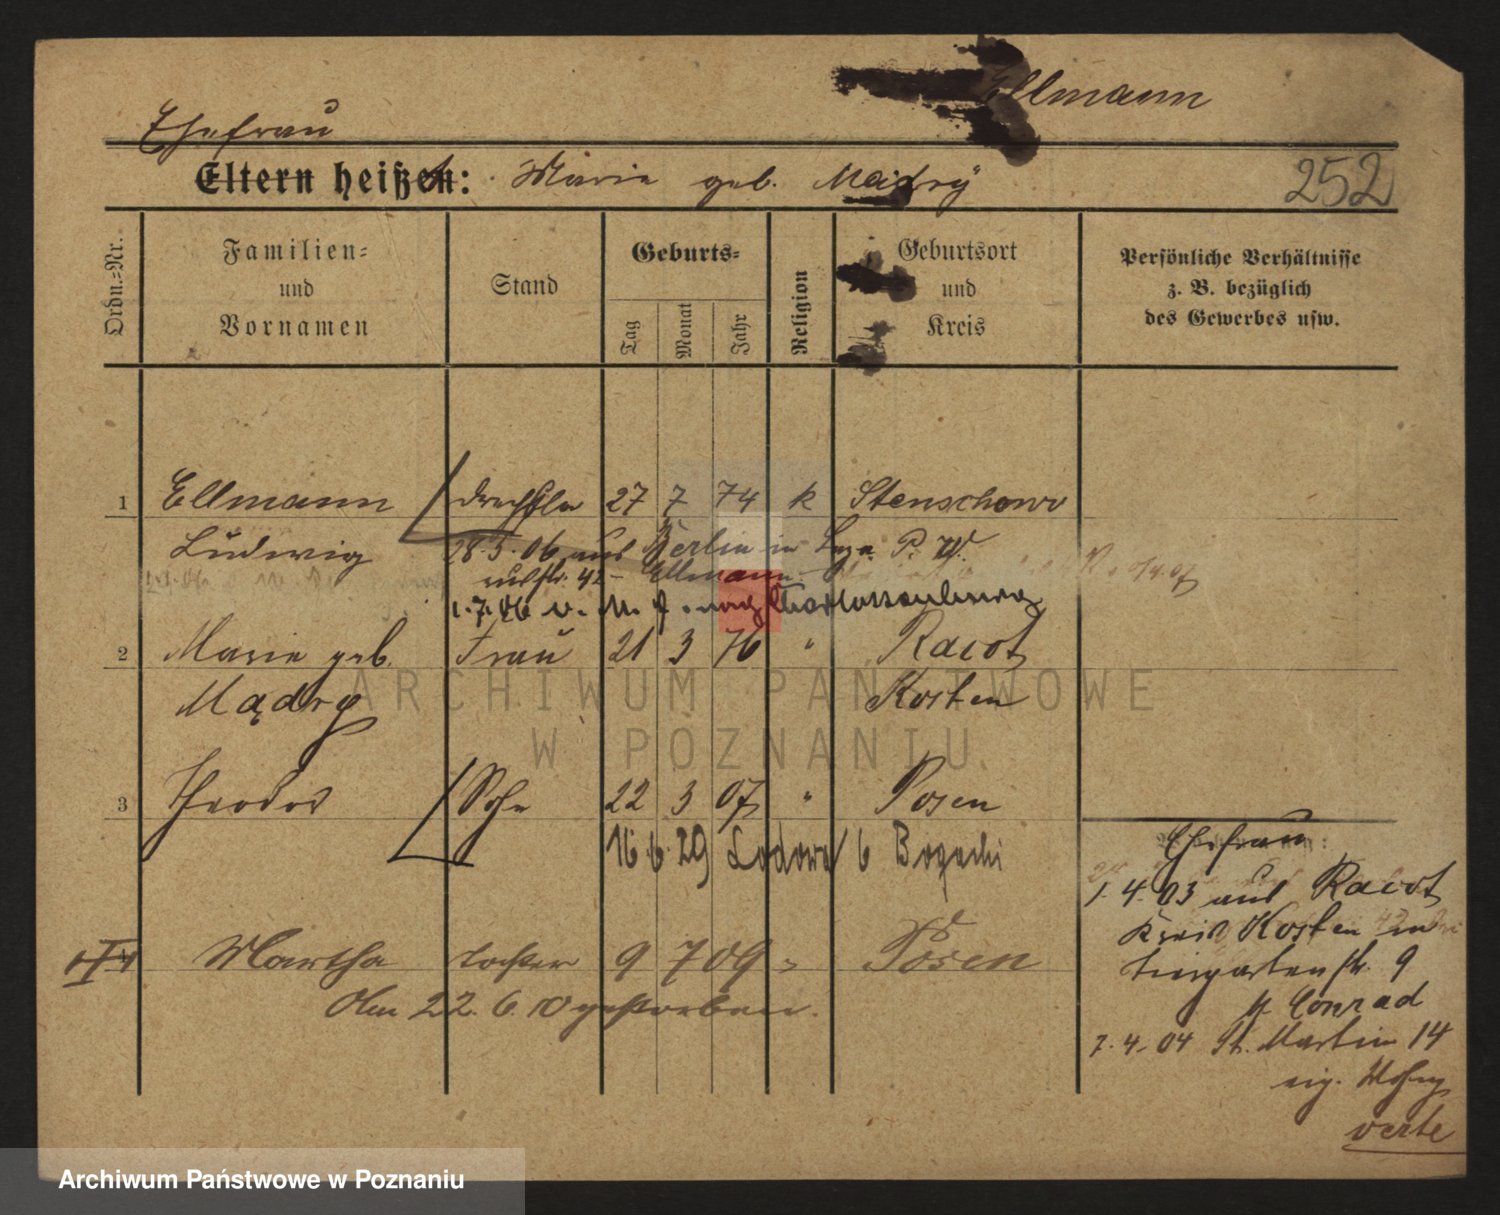 Ellmann
Ehefrau
Eltern heißen: Marie geb. Mądry
252
Ordn.-Nr.
Familien-
und
Vornamen
Stand
Geburts-
Tag
Monat
Jahr
Religion
Geburtsort
und
Kreis
Persönliche Verhältnisse
z. B. bezüglich
des Gewerbes usw.
1 Ellmann Drechsler 27 7 74 k Stenschewo
Ludwig 28.5.06 aus Berlin in P. W.
42 - Ellmann
1.7.06 v. M. 9. nach Charlottenburg
2 Marie geb. Frau 21 3 76 " Racot
Mądry Kosten
3 Theodor Sohn 22 3 07 " Posen
16.6.29 6
Martha Tochter 9 7 09 " Posen
Am 22.6.10 gestorben.
Ehefrau
1.4.03 aus Racot
Kreis Kosten in
Tiergartenstr. 9
Conrad
7.4.04 St. Martin 14
eig. Wohng
verte
ARCHIWUM PAŃSTWOWE
W POZNANIU
Archiwum Państwowe w Poznaniu